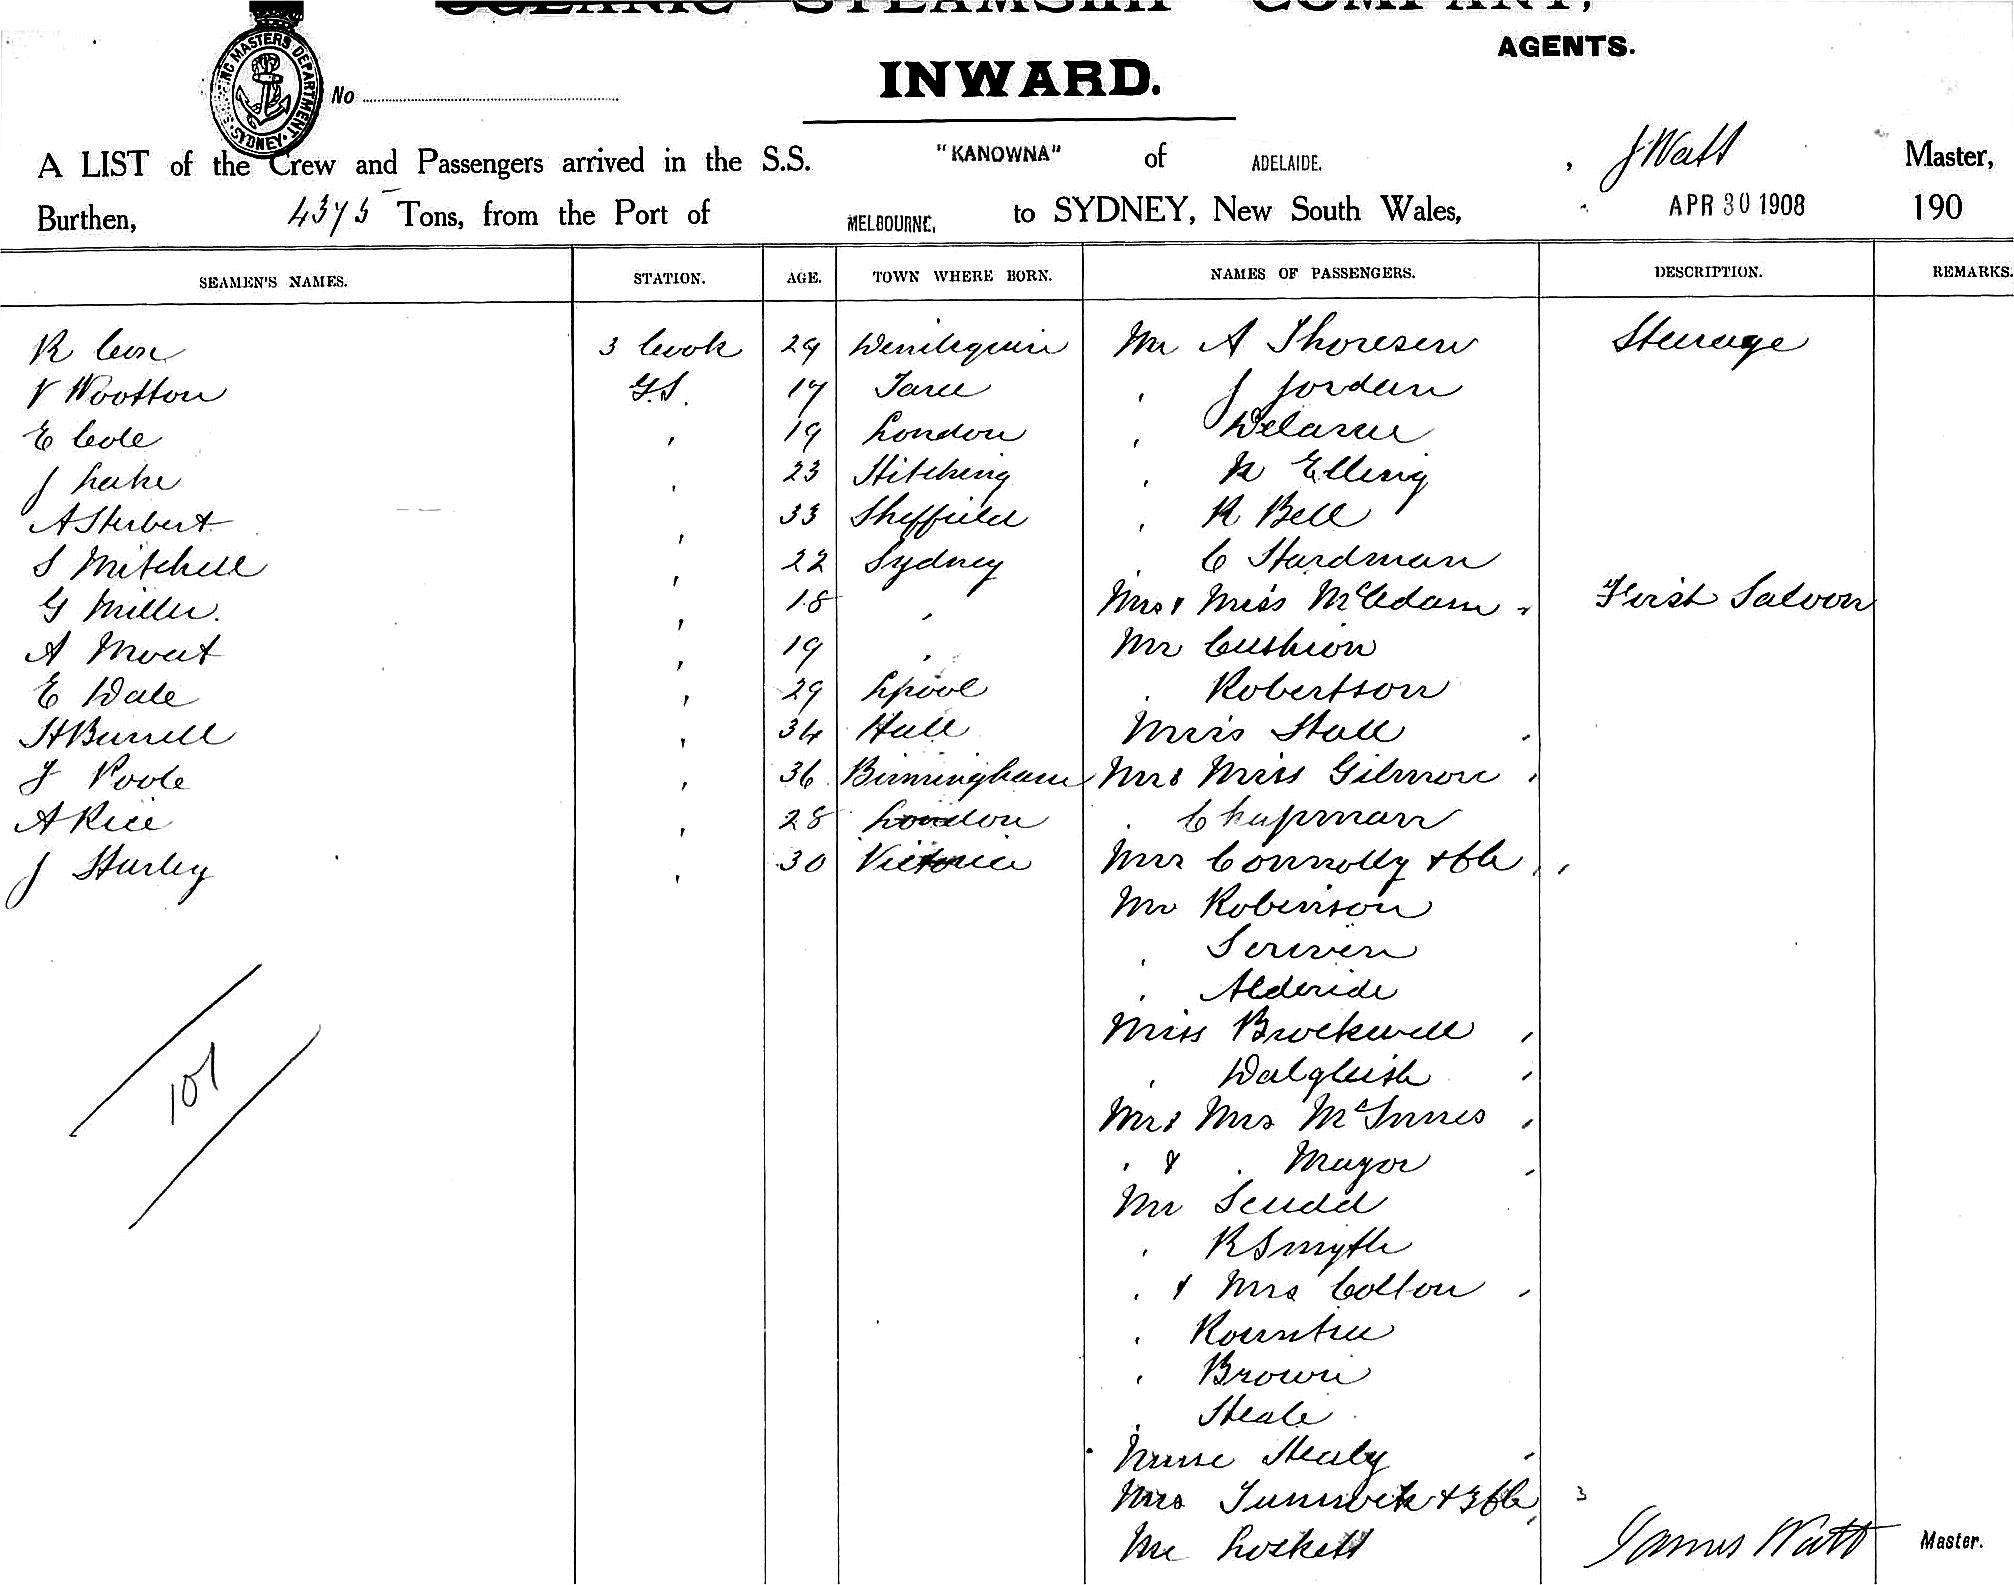 OCEANIC STEAMSHIP COMPANY,
AGENTS.
INWARD.
MASTERS DEPARTMENT SYDNEY
No
A LIST of the Crew and Passengers arrived in the S.S. "KANOWNA" of ADELAIDE. , J Watt Master,
Burthen, 4375 Tons, from the Port of MELBOURNE, to SYDNEY, New South Wales, APR 30 1908 190
SEAMEN'S NAMES. STATION. AGE. TOWN WHERE BORN. NAMES OF PASSENGERS. DESCRIPTION. REMARKS.
R Cox 3 Cook 29 Deniliquin Mr A Thoresen Steerage
V Wootton G.S. 17 Taree , J Jordan
E Cole , 19 London , Delarue
J Lake , 23 Hitching , R Elling
A Herbert , 33 Sheffield , R Bell
S Mitchell , 22 Sydney , C Hardman
G Miller. , 18 , Mrs & Miss McAdam , First Saloon
A Mout , 19 , Mr Cushion
E Dale , 29 Lpool , Robertson
H Burrell , 34 Hull Miss Hall ,
J Poole , 36 Birmingham Mr & Miss Gilmore ,
A Rice , 28 London , Chapman
J Hurley , 30 Victoria Mrs Connolly & Ch , ,
Mr Robinson
, Scriven
, Alderide
Miss Brockwell ,
, Dalgleish ,
101
Mr & Mrs McInnes ,
, & , Mayor ,
Mr Scudd
, R Smyth
, & Mrs Colton ,
, Rountree
, Brown
, Heale
Nurse Healy ,
Mrs & 3 Ch , 3
Mr Lockett
James Watt Master.